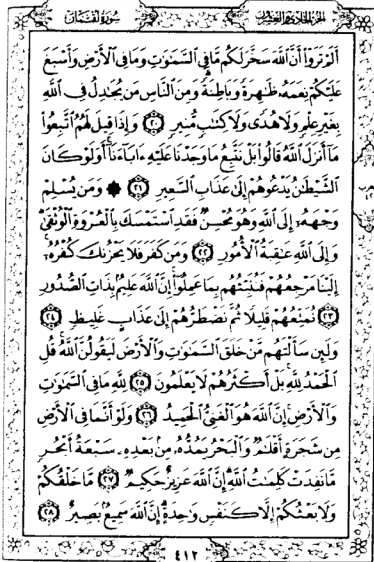 الجزء الحادي والعشرون سورة لقمان
أَلَمْ تَرَوْا۟ أَنَّ ٱللَّهَ سَخَّرَ لَكُم مَّا فِى ٱلسَّمَـٰوَٰتِ وَمَا فِى ٱلْأَرْضِ وَأَسْبَغَ
عَلَيْكُمْ نِعَمَهُۥ ظَـٰهِرَةً وَبَاطِنَةً وَمِنَ ٱلنَّاسِ مَن يُجَـٰدِلُ فِى ٱللَّهِ
بِغَيْرِ عِلْمٍ وَلَا هُدًى وَلَا كِتَـٰبٍ مُّنِيرٍ ٢٠ وَإِذَا قِيلَ لَهُمُ ٱتَّبِعُوا۟
مَآ أَنزَلَ ٱللَّهُ قَالُوا۟ بَلْ نَتَّبِعُ مَا وَجَدْنَا عَلَيْهِ ءَابَآءَنَآ أَوَلَوْ كَانَ
ٱلشَّيْطَـٰنُ يَدْعُوهُمْ إِلَىٰ عَذَابِ ٱلسَّعِيرِ ٢١ ۞ وَمَن يُسْلِمْ
وَجْهَهُۥٓ إِلَى ٱللَّهِ وَهُوَ مُحْسِنٌ فَقَدِ ٱسْتَمْسَكَ بِٱلْعُرْوَةِ ٱلْوُثْقَىٰ
وَإِلَى ٱللَّهِ عَـٰقِبَةُ ٱلْأُمُورِ ٢٢ وَمَن كَفَرَ فَلَا يَحْزُنكَ كُفْرُهُۥٓ
إِلَيْنَا مَرْجِعُهُمْ فَنُنَبِّئُهُم بِمَا عَمِلُوٓا۟ إِنَّ ٱللَّهَ عَلِيمٌۢ بِذَاتِ ٱلصُّدُورِ
٢٣ نُمَتِّعُهُمْ قَلِيلًا ثُمَّ نَضْطَرُّهُمْ إِلَىٰ عَذَابٍ غَلِيظٍ ٢٤
وَلَئِن سَأَلْتَهُم مَّنْ خَلَقَ ٱلسَّمَـٰوَٰتِ وَٱلْأَرْضَ لَيَقُولُنَّ ٱللَّهُ قُلِ
ٱلْحَمْدُ لِلَّهِ بَلْ أَكْثَرُهُمْ لَا يَعْلَمُونَ ٢٥ لِلَّهِ مَا فِى ٱلسَّمَـٰوَٰتِ
وَٱلْأَرْضِ إِنَّ ٱللَّهَ هُوَ ٱلْغَنِىُّ ٱلْحَمِيدُ ٢٦ وَلَوْ أَنَّمَا فِى ٱلْأَرْضِ
مِن شَجَرَةٍ أَقْلَـٰمٌ وَٱلْبَحْرُ يَمُدُّهُۥ مِنۢ بَعْدِهِۦ سَبْعَةُ أَبْحُرٍ
مَّا نَفِدَتْ كَلِمَـٰتُ ٱللَّهِ إِنَّ ٱللَّهَ عَزِيزٌ حَكِيمٌ ٢٧ مَّا خَلْقُكُمْ
وَلَا بَعْثُكُمْ إِلَّا كَنَفْسٍ وَٰحِدَةٍ إِنَّ ٱللَّهَ سَمِيعٌۢ بَصِيرٌ ٢٨
٤١٣